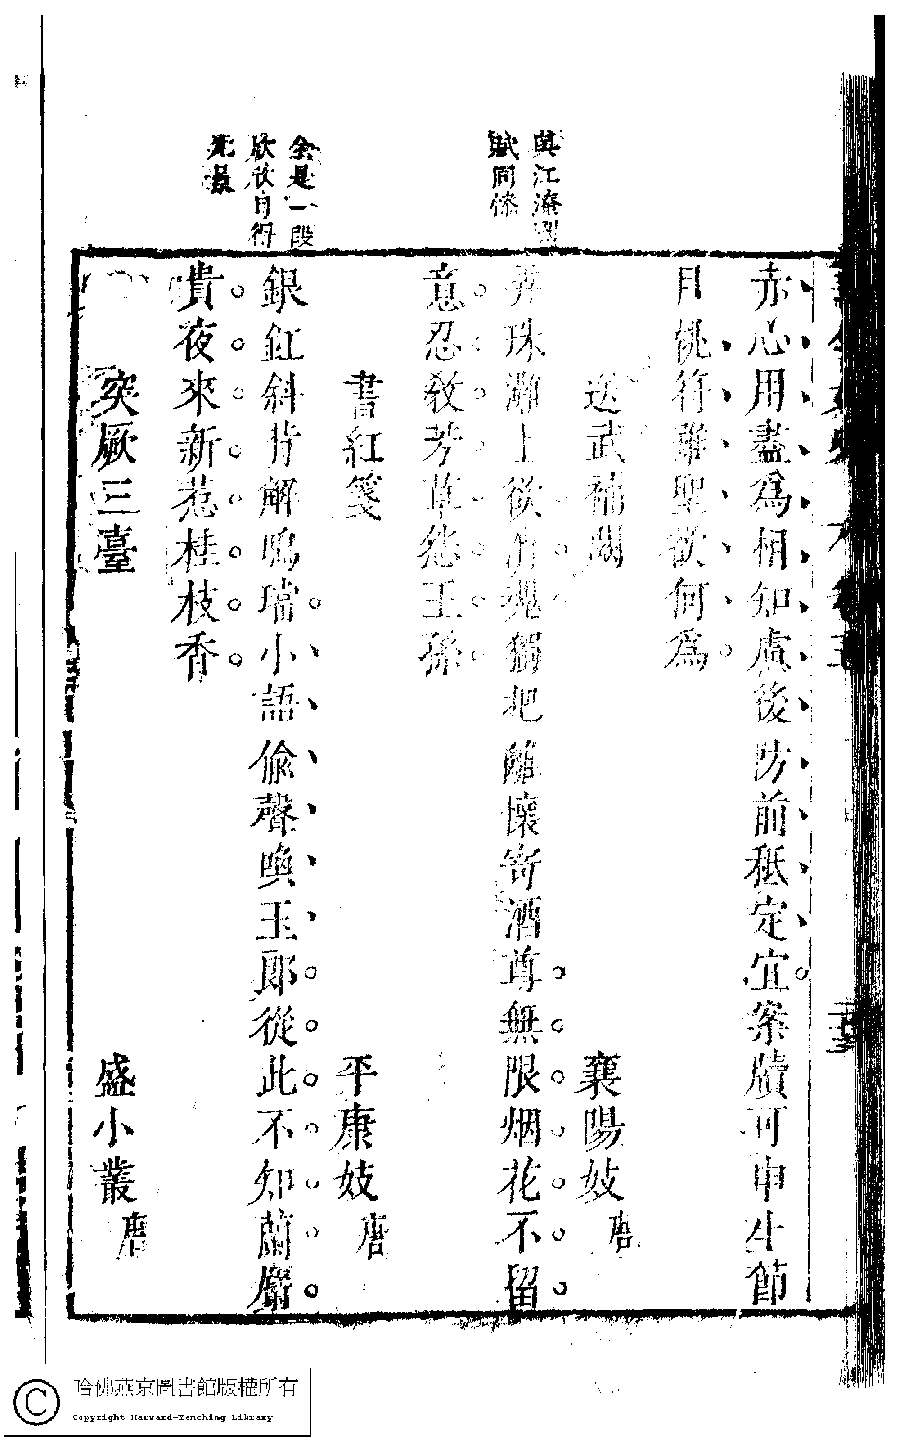 赤心用盡為相知慮後防前秪定宜案牘可申生節
目桃符雖聖欲何為
送武補闕
襄陽妓 唐
弄珠灘上欲消魂獨把離懷寄酒尊無限烟花不留
意忍教芳草怨王孫
書紅箋
平康妓 唐
銀釭斜背解鳴璫小語偷聲喚玉郎從此不知蘭麝
貴夜來新惹桂枝香
突厥三臺
盛小叢 唐
賦同慘
全是一段
欣欣自得
光景
哈佛燕京圖書館版權所有
Copyright Harvard-Yenching Library